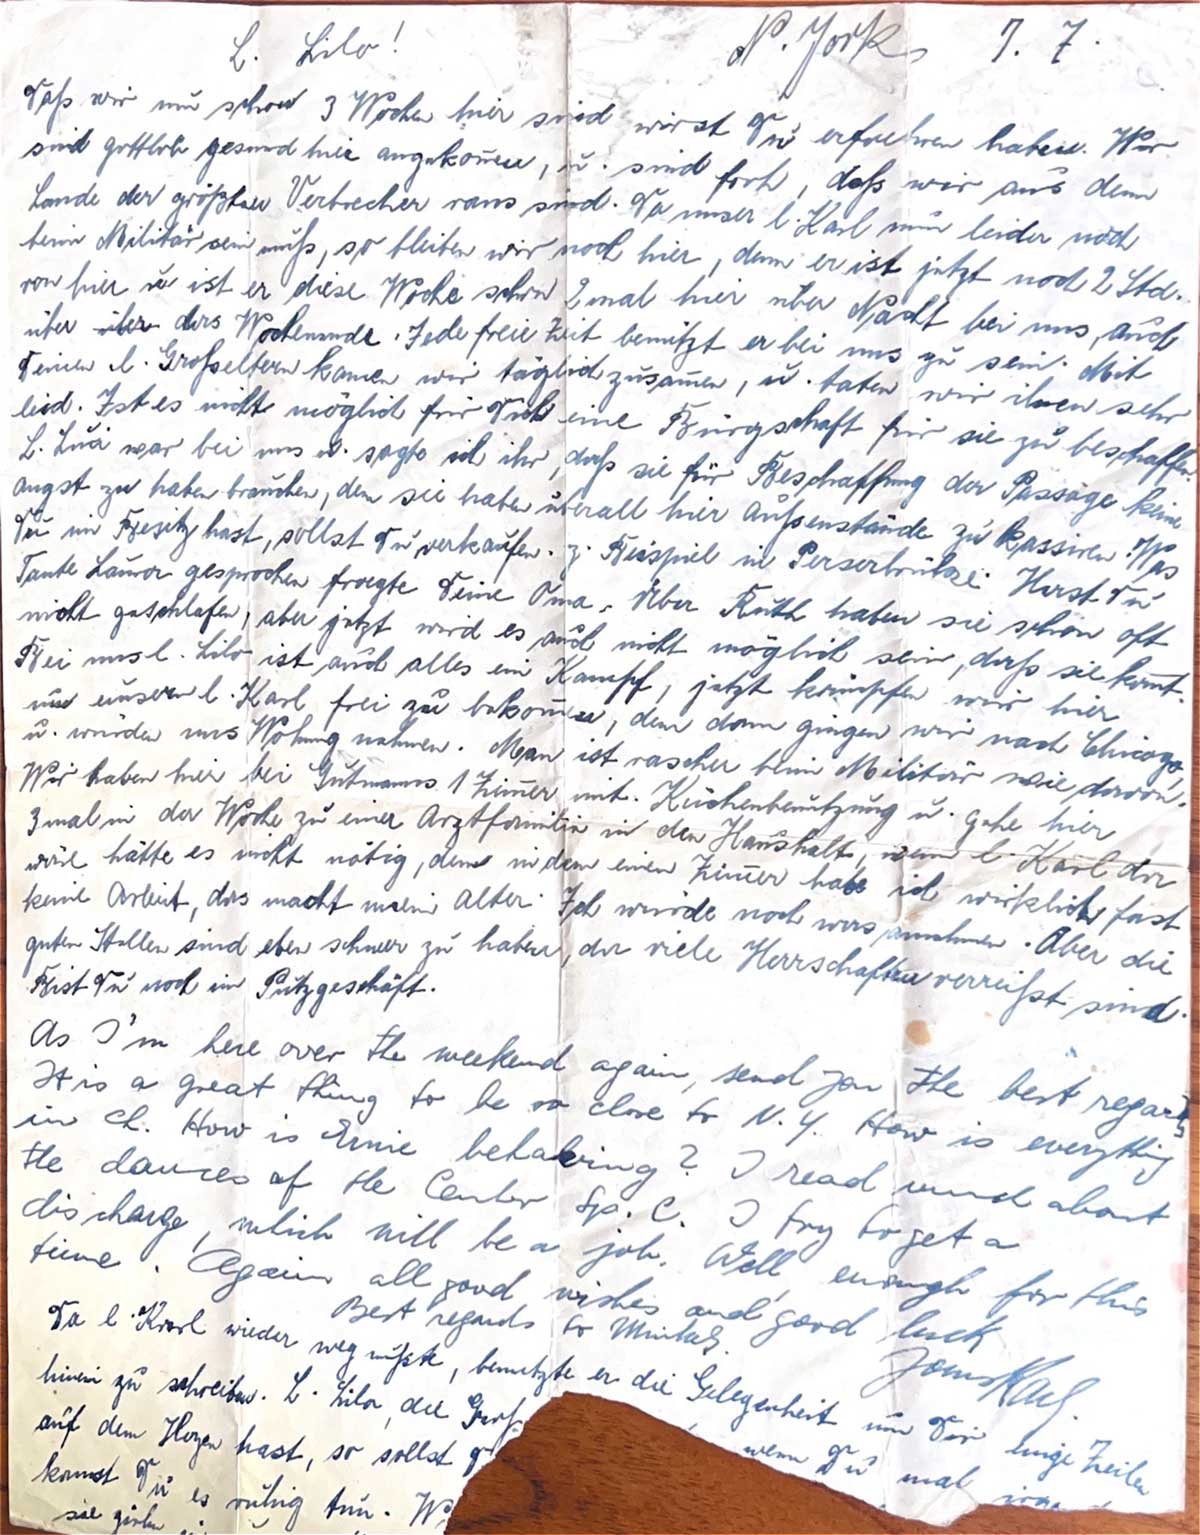 L. Lilo! N. York, 7. 7.
Daß wir nun schon 3 Wochen hier sind wirst Du erfahren haben. Wir
sind gottlob gesund hier angekom̄en, u. sind froh, daß wir aus dem
Lande der größten Verbrecher raus sind. Da unser l. Karl nun leider noch
beim Militär sein muß, so bleiben wir noch hier, denn er ist jetzt noch 2 Std.
von hier u ist er diese Woche schon 2 mal hier über Nacht bei uns, auch
über über das Wochenende. Jede freie Zeit benützt er bei uns zu sein. Mit
Deinen l. Großeltern kamen wir täglich zusam̄en, u. taten wir ihnen sehr
leid. Ist es nicht möglich für Dich eine Bürgschaft für sie zu beschaffen.
L. war bei uns u. sagte ich ihr, daß sie für Beschaffung der Passage keine
angst zu haben brauchen, den sie haben überall hier Außenstände zu kassiren. Was
Du im Besitz hast, sollst Du verkaufen. z. Beispiel in Perserbrücke. Hast Du
Tante gesprochen fragte Deine Oma. Über Ruth haben sie schon oft
nicht geschlafen, aber jetzt wird es auch nicht möglich sein, daß sie kom̄t.
Bei uns l. Lilo ist auch alles ein Kampf, jetzt kämpfen wir hier
um unsern l. Karl frei zu bekom̄en, denn dann gingen wir nach Chicago,
u. würden uns Wohnung nehmen. Man ist rascher beim Militär wie davon.
Wir haben hier bei Gutmanns 1 Zim̄er mit. Küchenbenützung u. gehe hier
3 mal in der Woche zu einer Arztfamilie in den Haushalt, wenn l. Karl da
wäre hätte es nicht nötig, denn in dem einen Zim̄er habe ich wirklich fast
keine Arbeit, das macht mein Alter. Ich würde noch was annehmen. Aber die
guten Stellen sind eben schwer zu haben, da viele Herrschaften verreißt sind.
Bist Du noch im Putzgeschäft.
As I'm here over the weekend again, send you the best regards
It is a great thing to be so close to N.Y. How is everything
in Ch. How is Ernie behaving? I read about
the dances of the Center Sp. C. I try to get a
discharge, which will be a job. Well, enough for this
time. Again all good wishes and good luck
Best regards to
Karl.
Da l. Karl wieder weg mußte, benutzte er die Gelegenheit um Dir einige Zeilen
hinein zu schreiben. L. Lilo, die
auf dem Herzen hast, so sollst wenn Du mal
kannst Du es ruhig tun.
sie